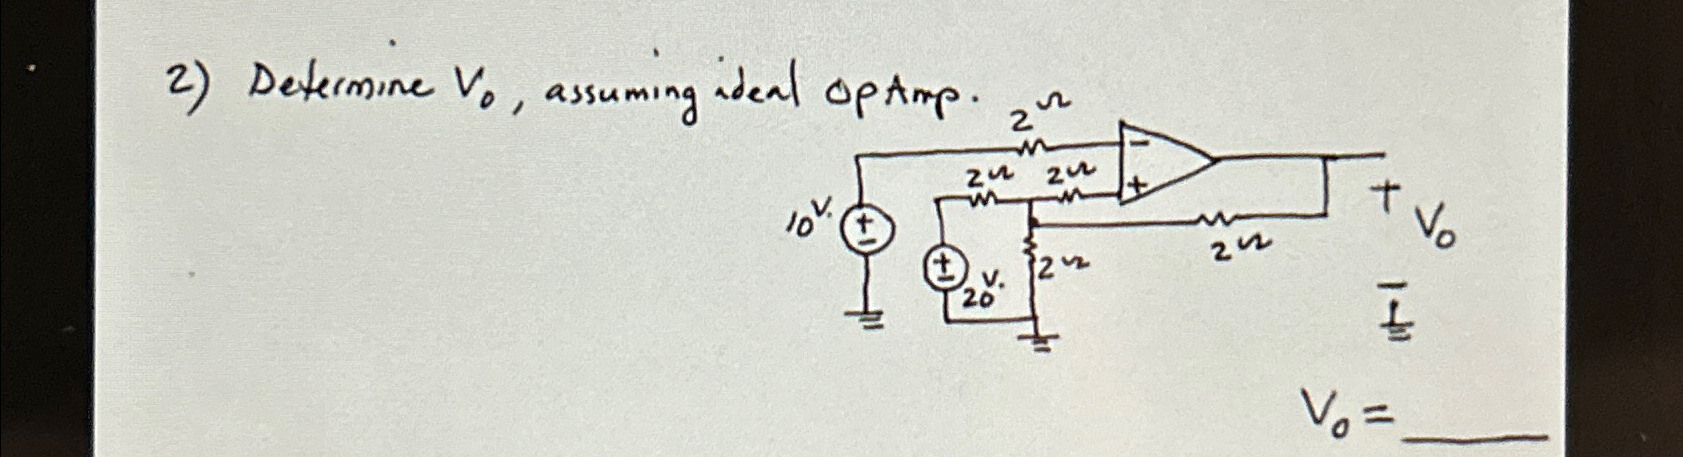 2) Determine V₀, assuming ideal OpAmp.
2Ω
2Ω 2Ω
10V.
20V.
2Ω
2Ω
+
V₀
-
V₀ = ____